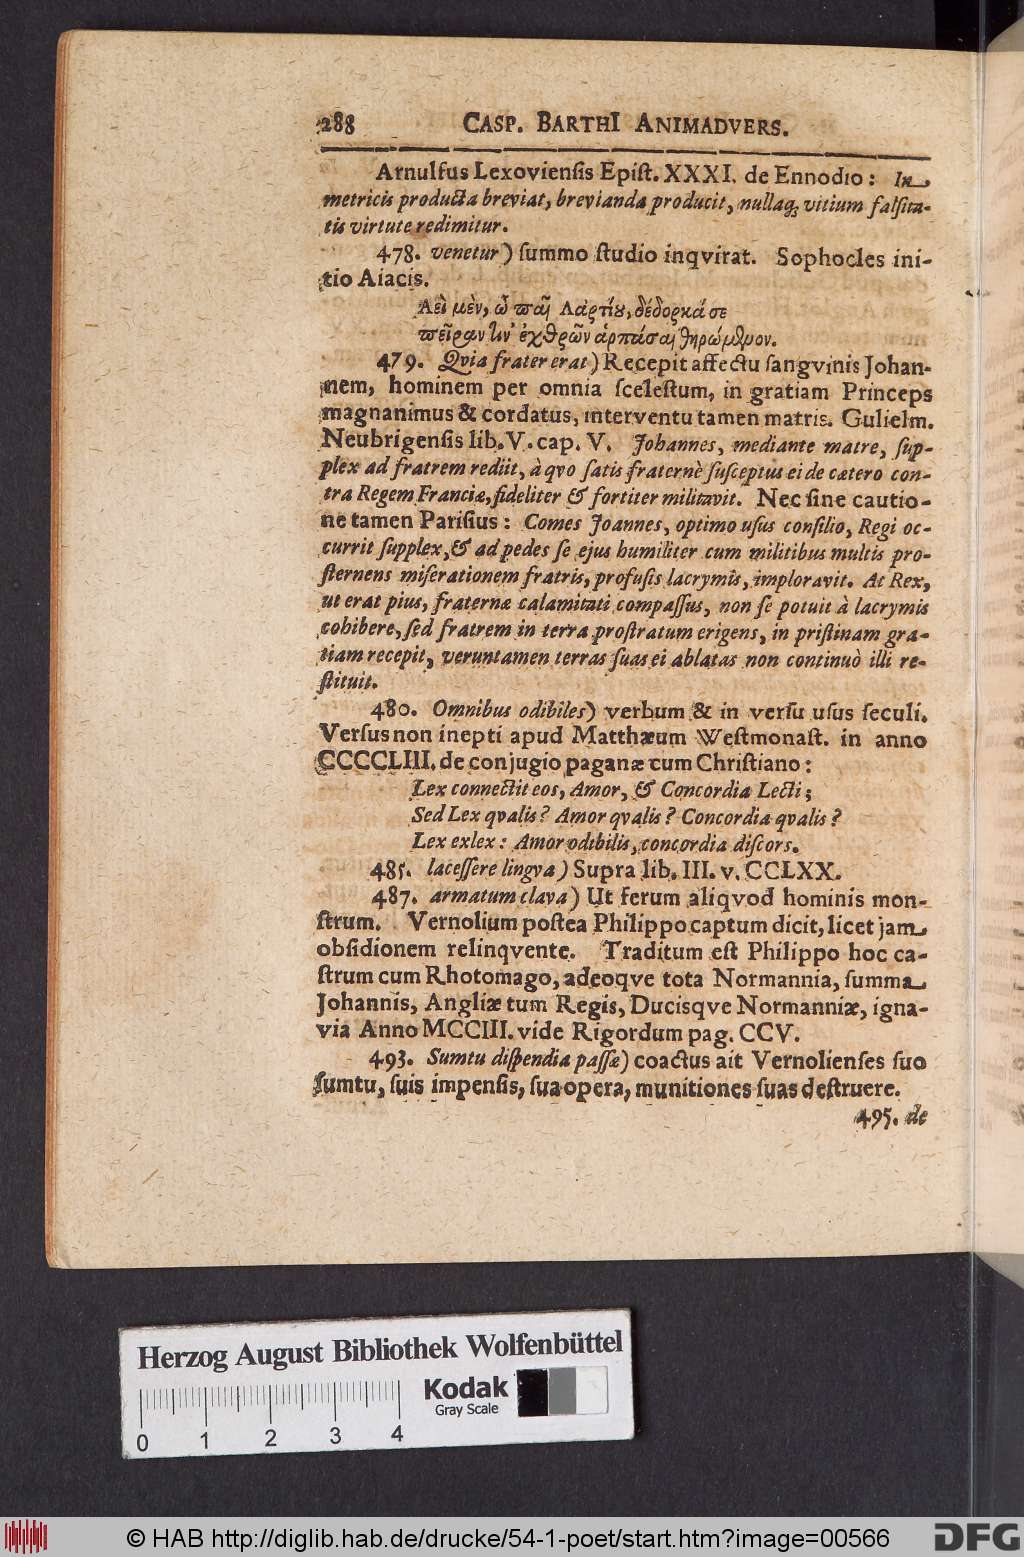 288 CASP. BARTHI ANIMADVERS.
Arnulfus Lexoviensis Epist. XXXI. de Ennodio: In
metricis producta breviat, brevianda producit, nullaq; vitium falsita-
tis virtute redimitur.
478. venetur) summo studio inqvirat. Sophocles ini-
tio Aiacis.
Αεὶ μὲν, ὦ παῖ Λαρτίου, δέδορκά σε
πεῖράν τιν' ἐχθρῶν ἁρπάσαι θηρώμενον.
479. Qvia frater erat) Recepit affectu sangvinis Johan-
nem, hominem per omnia scelestum, in gratiam Princeps
magnanimus & cordatus, interventu tamen matris. Gulielm.
Neubrigensis lib. V. cap. V. Johannes, mediante matre, sup-
plex ad fratrem rediit, à qvo satis fraternè susceptus ei de cætero con-
tra Regem Franciæ, fideliter & fortiter militavit. Nec sine cautio-
ne tamen Parisius: Comes Joannes, optimo usus consilio, Regi oc-
currit supplex, & ad pedes se ejus humiliter cum militibus multis pro-
sternens miserationem fratris, profusis lacrymis, imploravit. At Rex,
ut erat pius, fraternæ calamitati compassus, non se potuit à lacrymis
cohibere, sed fratrem in terra prostratum erigens, in pristinam gra-
tiam recepit, veruntamen terras suas ei ablatas non continuò illi re-
stituit.
480. Omnibus odibiles) verbum & in versu usus seculi.
Versus non inepti apud Matthæum Westmonast. in anno
CCCCLIII. de conjugio paganæ cum Christiano:
Lex connectit eos, Amor, & Concordia Lecti;
Sed Lex qvalis? Amor qvalis? Concordia qvalis?
Lex exlex: Amor odibilis, concordia discors.
485. lacessere lingva) Supra lib. III. v. CCLXX.
487. armatum clava) Ut ferum aliqvod hominis mon-
strum. Vernolium postea Philippo captum dicit, licet jam
obsidionem relinqvente. Traditum est Philippo hoc ca-
strum cum Rhotomago, adeoqve tota Normannia, summa
Johannis, Angliæ tum Regis, Ducisqve Normanniæ, igna-
via Anno MCCIII. vide Rigordum pag. CCV.
493. Sumtu dispendia passæ) coactus ait Vernolienses suo
sumtu, suis impensis, sua opera, munitiones suas destruere.
495. de
Herzog August Bibliothek Wolfenbüttel
Kodak
Gray Scale
0 1 2 3 4
© HAB http://diglib.hab.de/drucke/54-1-poet/start.htm?image=00566
DFG